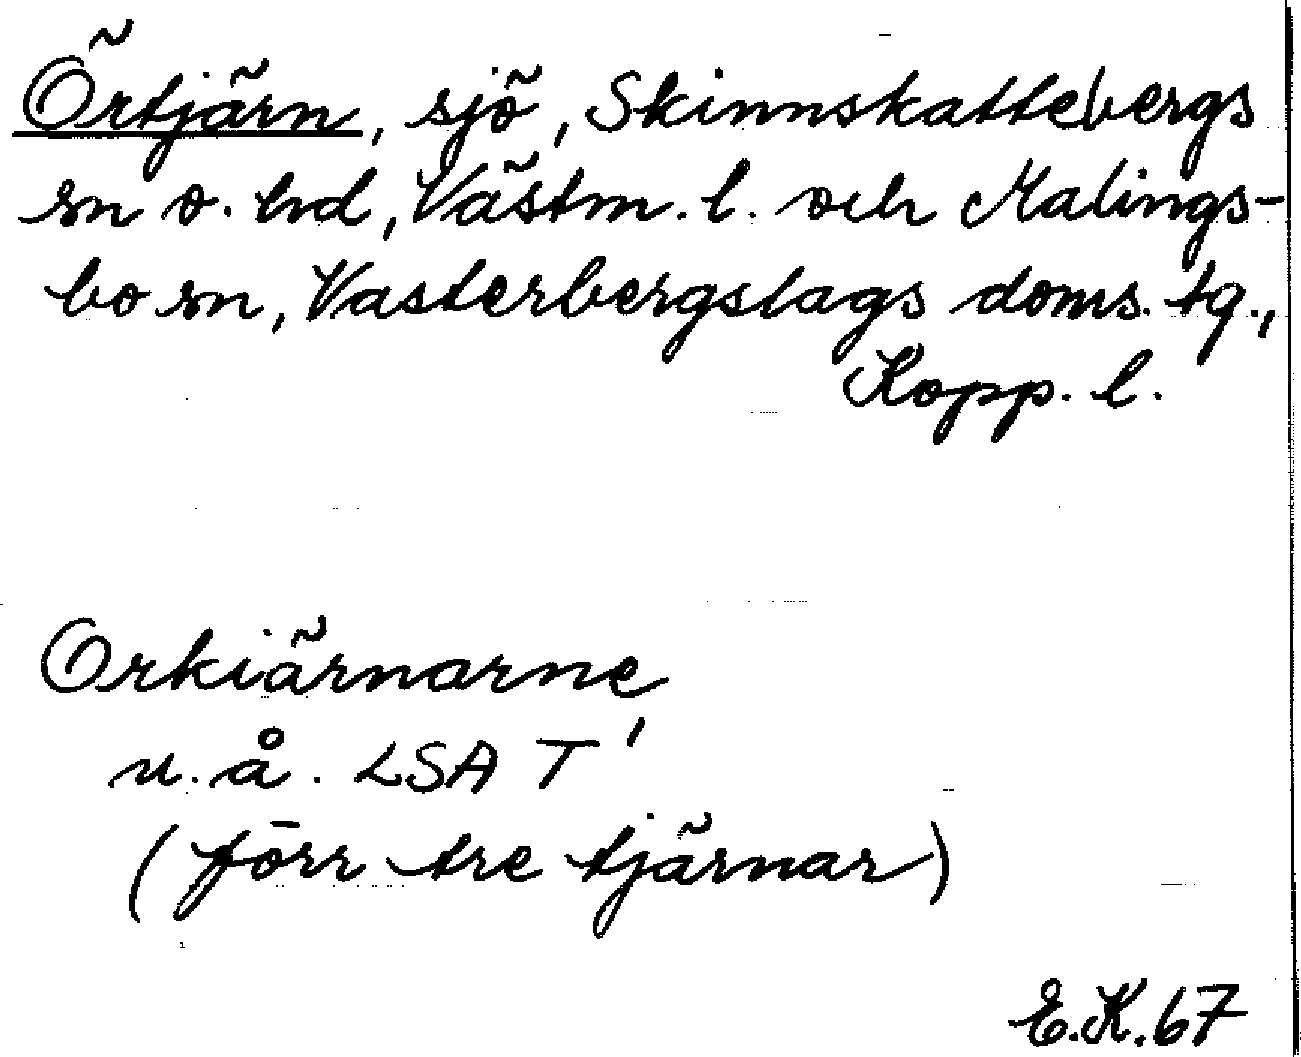 Örtjärn, sjö, Skinnskattebergs
sn o. hd, Västm. l. och Malings-
bo sn, Vasterbergslags doms. tg.,
Kopp. l.
Orkiärnarne
u.å. LSA T'
(förr tre tjärnar)
E.K.67